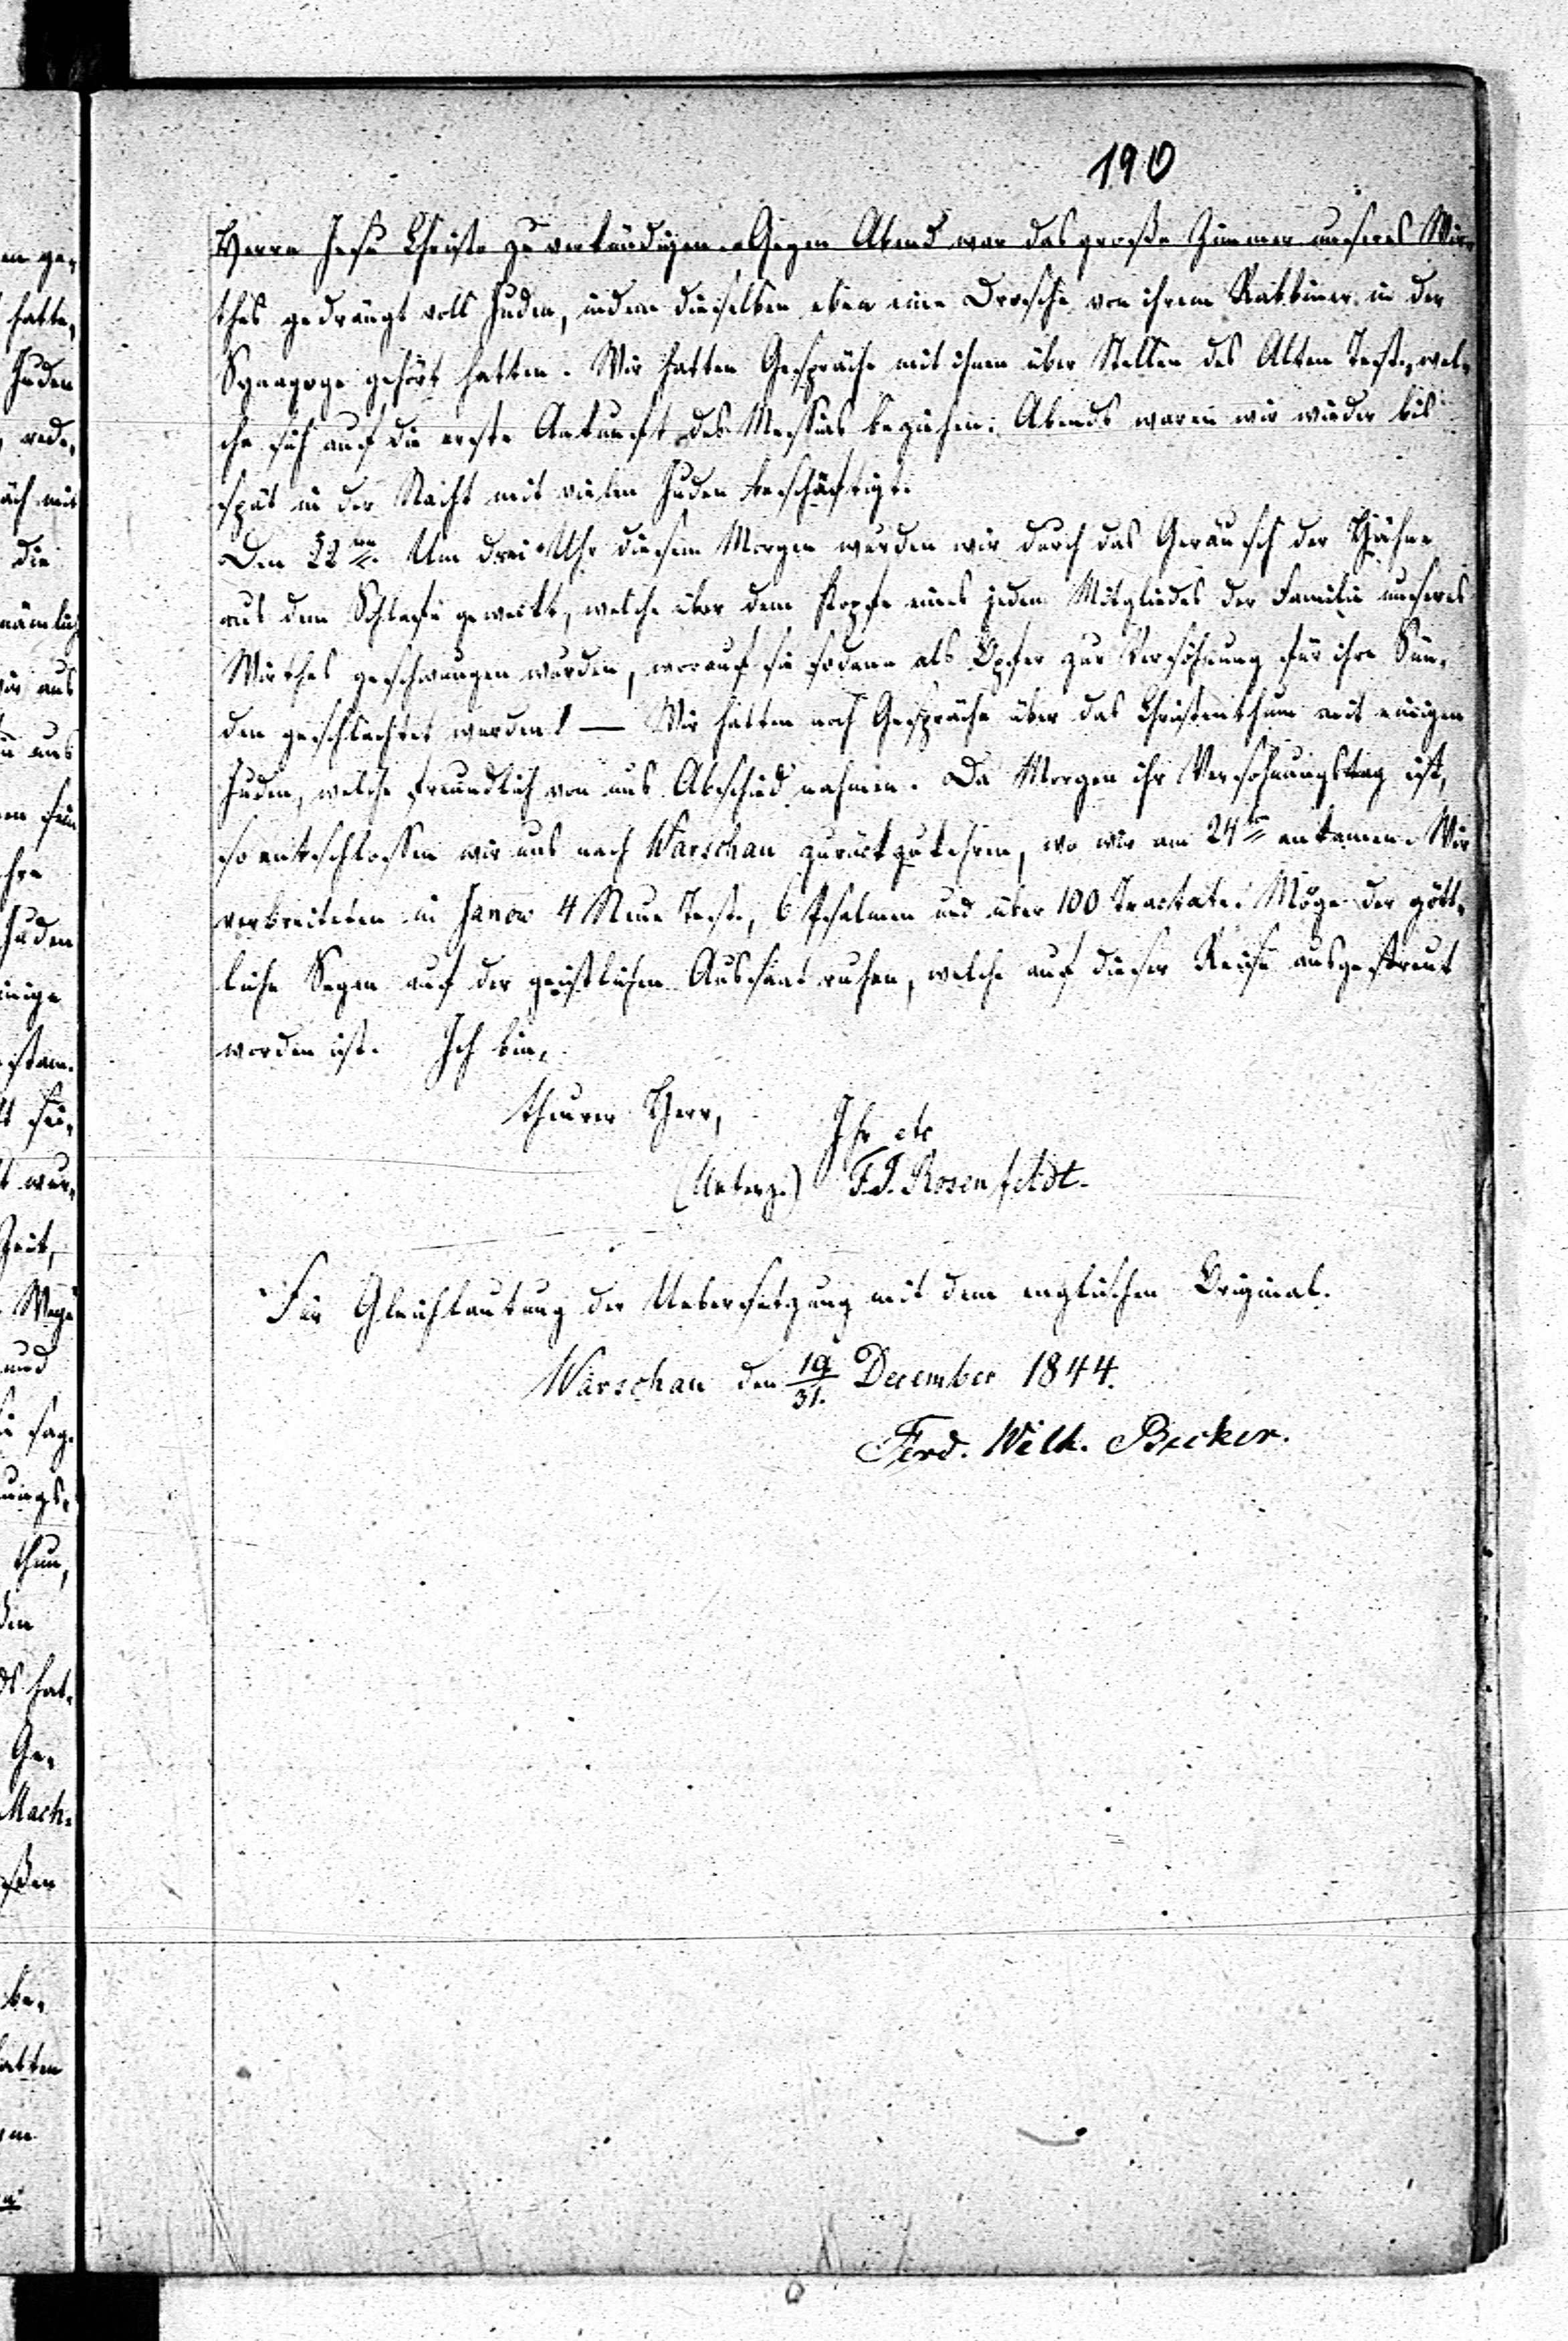 190
Herrn Jesu Christo zu verkündigen. Gegen Abend war das große Zimmer unseres Wir-
thes gedrängt voll Juden, indem dieselben eben eine Drosche von ihrem Rabbiner in der
Synagoge gehört hatten. Wir hatten Gespräche mit ihnen über Stellen des Alten Test., wel-
che sich auf die erste Ankunft des Messias beziehen. Abends waren wir wieder bis
spät in der Nacht mit vielen Juden beschäftigt.
Den 22ten. Um drei Uhr diesem Morgen wurden wir durch das Geräusch der Hähne
aus dem Schlafe geweckt, welche über dem Kopfe eines jeden Mitgliedes der Familie unseres
Wirthes geschwungen wurden, worauf sie sodann als Opfer zur Versöhnung für ihre Sün-
den geschlachtet werden! — Wir hatten noch Gespräche über das Christenthum mit einigen
Juden, welche freundlich von uns Abschied nahmen. Da Morgen ihr Versöhnungstag ist,
so entschlossen wir uns nach Warschau zurückzukehren, wo wir am 24ten ankamen. Wir
verbreiteten in Janow 4 Neue Test., 6 Psalmen und über 100 Tractate. Möge der gött-
liche Segen auf der geistlichen Aussaat ruhen, welche auf dieser Reise ausgestreut
worden ist. Ich bin,
theurer Herr,
Ihr etc
(Unterz.) F.J. Rosenfeldt.
Für Gleichlautung der Uebersetzung mit dem englischen Original.
Warschau den 19/31. December 1844.
Ferd. Wilh. Becker.